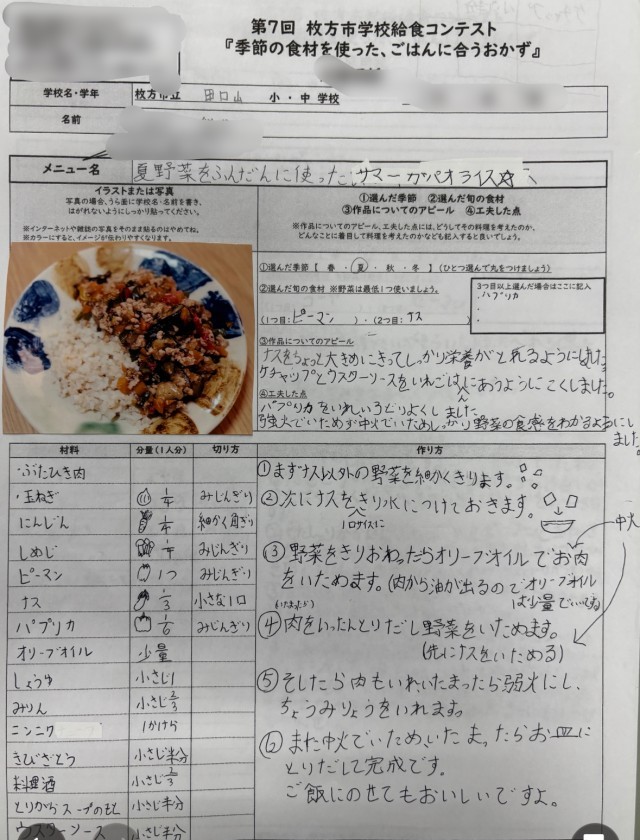 第7回 枚方市学校給食コンテスト
『季節の食材を使った、ごはんに合うおかず』
学校名・学年
枚方市立 田口山 小・中 学校
名前
メニュー名
夏野菜をふんだんに使った サマーガパオライス☆
イラストまたは写真
写真の場合、うら面に学校名・名前を書き、
はがれないようにしっかり貼ってください。
※インターネットや雑誌の写真をそのまま貼るのはやめてね。
※カラーにすると、イメージが伝わりやすくなります。
①選んだ季節 ②選んだ旬の食材
③作品についてのアピール ④工夫した点
※作品についてのアピール、工夫した点には、どうしてその料理を考えたのか、
どんなことに着目して料理を考えたのかなども記入すると良いでしょう。
①選んだ季節【 春 ・ 夏 ・ 秋 ・ 冬 】(ひとつ選んで丸をつけましょう)
②選んだ旬の食材 ※野菜は最低1つ使いましょう。
(1つ目:ピーマン )・(2つ目:ナス )
3つ目以上選んだ場合はここに記入
・パプリカ
・
・
③作品についてのアピール
ナスをちょっと大きめにきってしっかり栄養がとれるようにしました。
ケチャップとウスターソースをいれごはんにあうようにこくしました。
④工夫した点
パプリカをいれいろどりよくしました。
強火でいためず中火でいためしっかり野菜の食感をわかるようにし
ました。
材料 分量(1人分) 切り方 作り方
・ぶたひき肉
・玉ねぎ 1/4 みじんぎり
にんじん 1/4 細かく角ぎり
しめじ 1/4 みじんぎり
ピーマン 1つ みじんぎり
ナス 1/3 小さな1口
パプリカ 1/6 みじんぎり
オリーブオイル 少量
しょうゆ 小さじ1
みりん 小さじ2/3
ニンニク 1かけら
きびざとう 小さじ半分
料理酒 小さじ2/3
とりがらスープのもと 小さじ半分
ウスターソース 小さじ半分
①まずナス以外の野菜を細かくきります。
②次にナスをきり水につけておきます。
1口サイズに
中火
③野菜をきりおわったらオリーブオイルでお肉
をいためます。(肉から油が出るのでオリーブオイル
は少量でいいです)
(いたまったら)
④肉をいったんとりだし野菜をいためます。
(先にナスをいためる)
⑤そしたら肉もいれ、いたまったら弱火にし、
ちょうみりょうをいれます。
⑥また中火でいため、いたまったらお皿に
とりだして完成です。
ご飯にのせてもおいしいですよ。